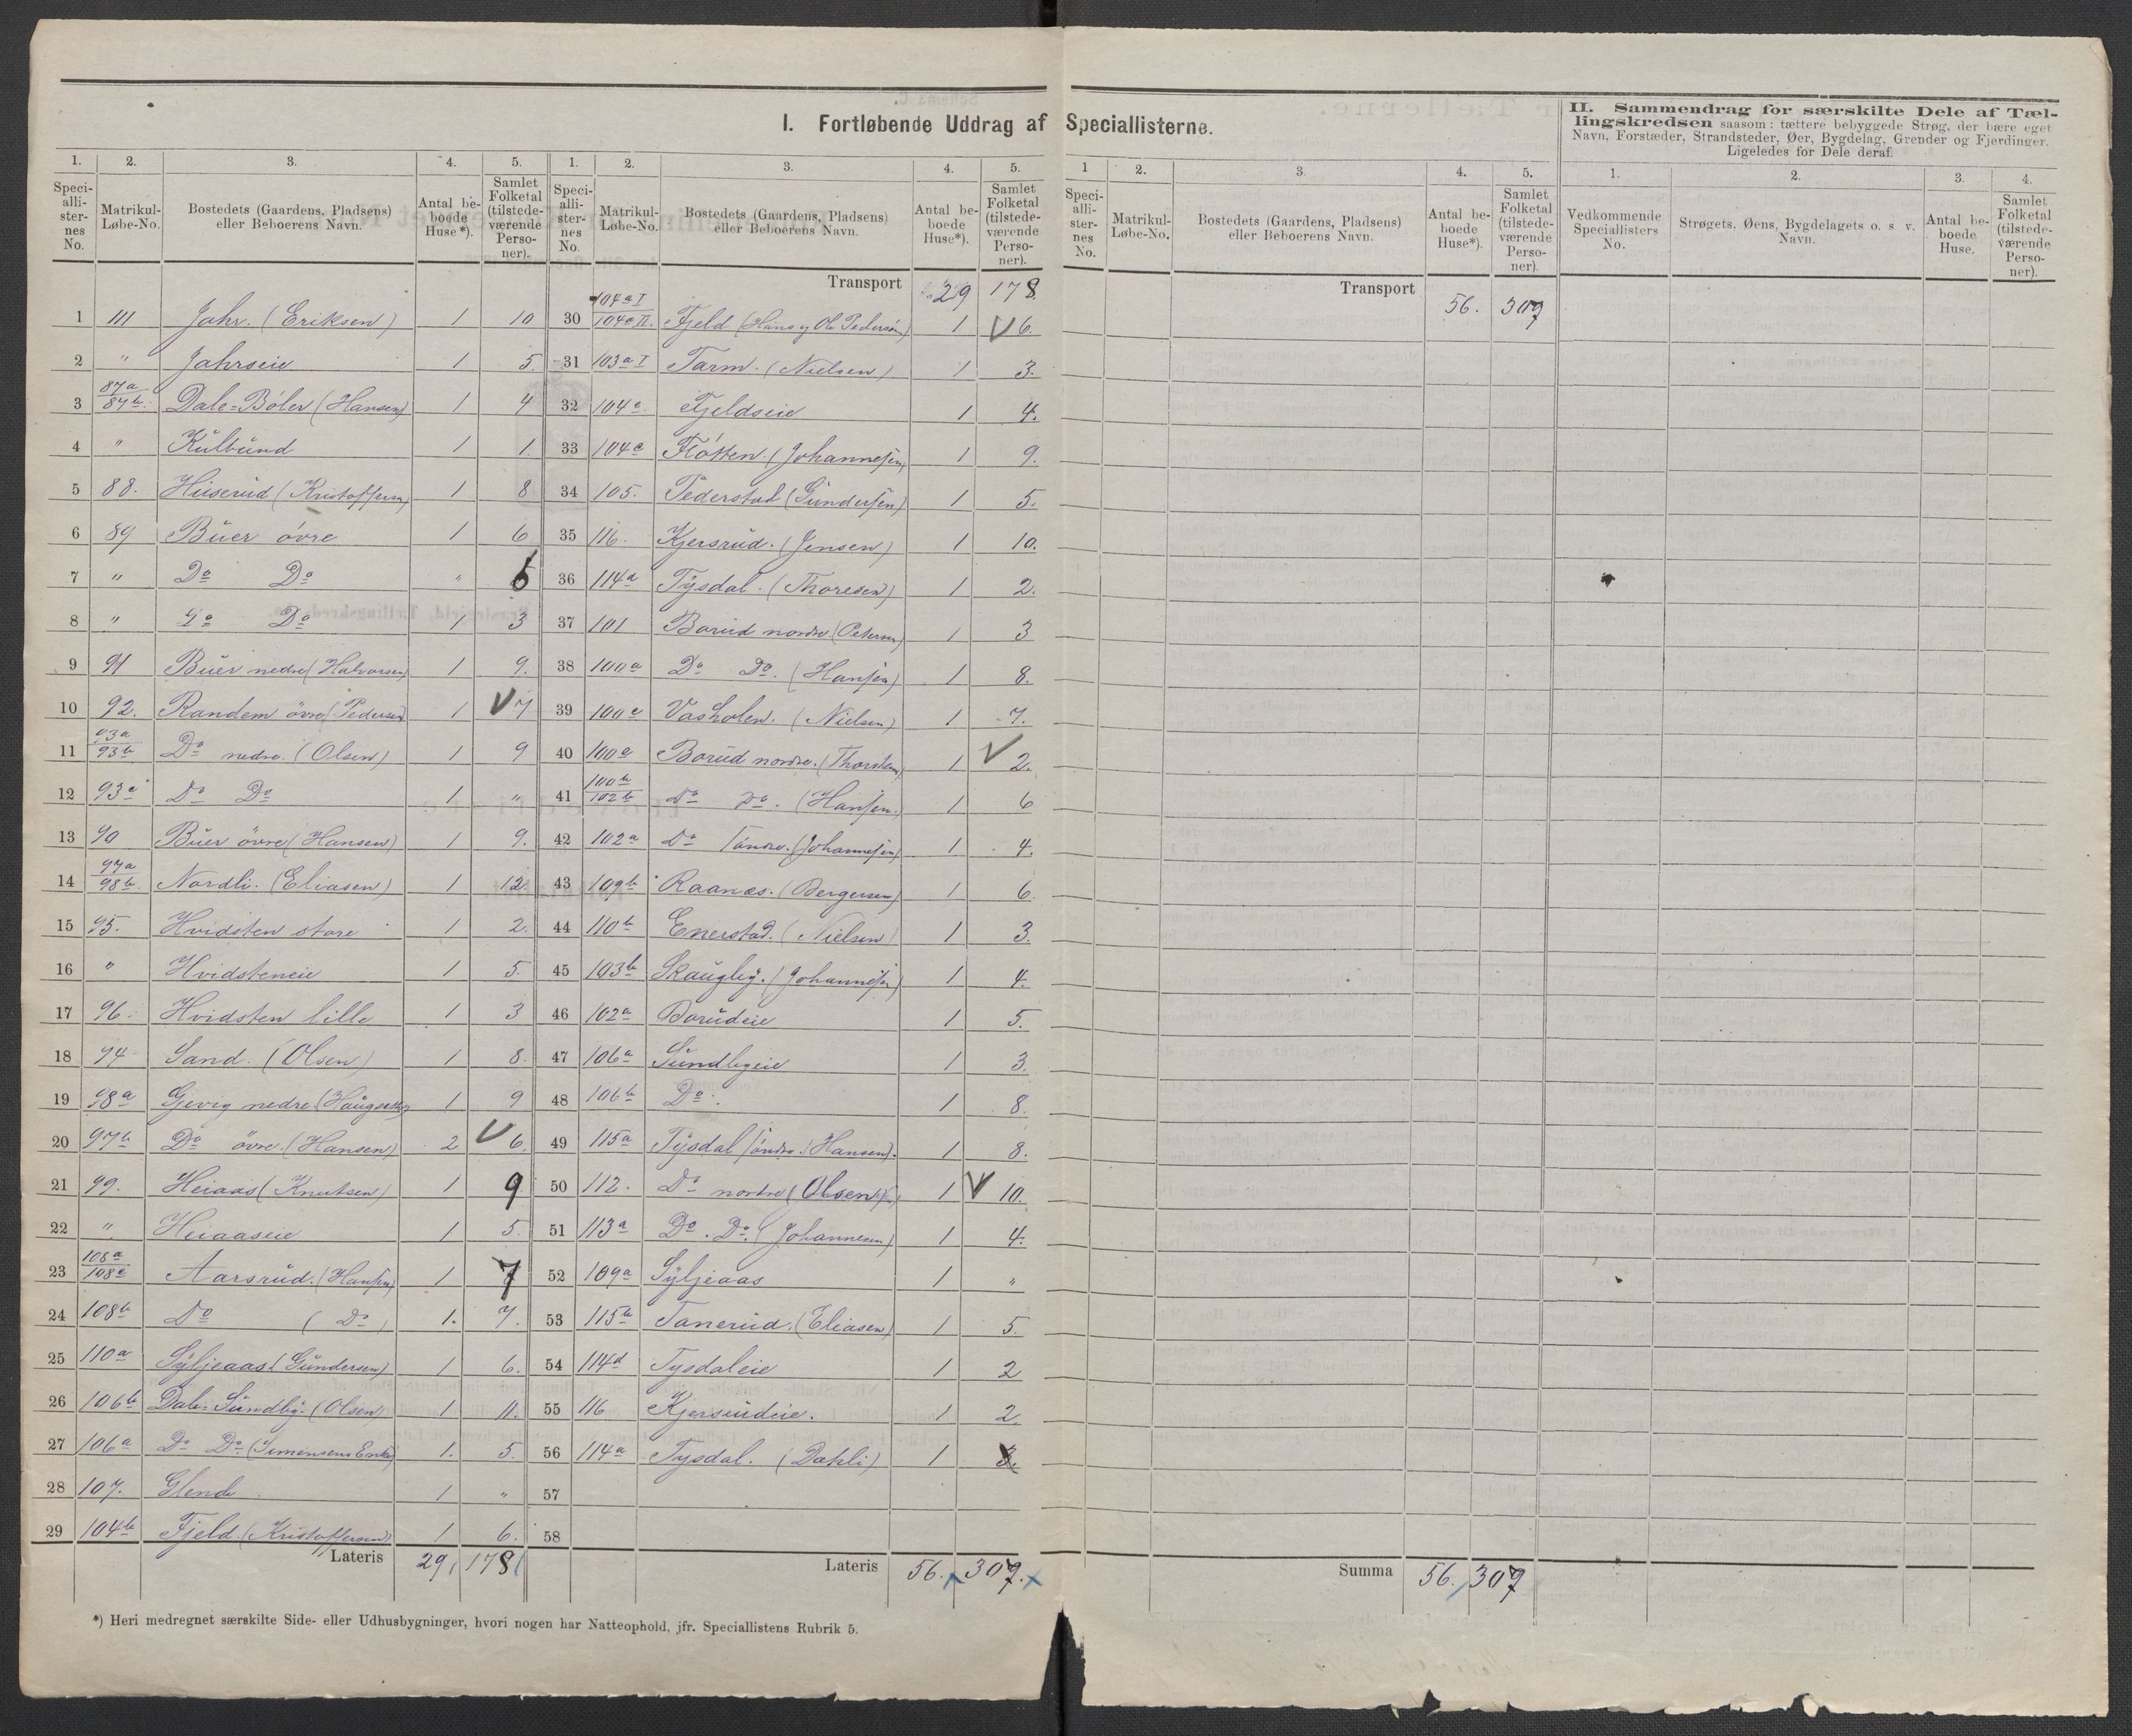 I. Fortløbende Uddrag af Speciallisterne.
1. 2. 3. 4. 5.
Speciallisternes No. Matrikul-Løbe-No. Bostedets (Gaardens, Pladsens) eller Beboerens Navn. Antal beboede Huse*). Samlet Folketal (tilstedeværende Personer).
1 111 Jahr. (Eriksen) 1 10
2 " Jahrseie 1 5.
3 87a/87b. Dale=Böler (Hansen) 1 4
4 " Kulbund 1 1
5 88. Huserud (Kristoffersen) 1 8
6 89 Buer övre 1 6
7 " Do Do " 6
8 " Do Do 1 3
9 91 Buer nedre (Halvorsen) 1 9.
10 92. Randem övre (Pedersen) 1 V 7
11 93a/93b Do nedre. (Olsen) 1 9
12 93c Do Do 1 "
13 90 Buer övre (Hansen) 1 9.
14 97a/98b Nordli. (Eliasen) 1 12.
15 95. Hvidsten store 1 2.
16 " Hvidsteneie 1 5.
17 96. Hvidsten lille 1 3
18 94 Sand. (Olsen) 1 8.
19 98a Gevig nedre 1 9
20 97b Do övre. (Hansen) 2 V 6.
21 99. Heiaas (Knutsen) 1 9
22 " Heiaaseie 1 5.
23 108a/108c Aarsrud. (Hansen) 1 7
24 108b Do (Do) 1. 7.
25 110a Syljeaas (Gundersen) 1 6.
26 106b Dale=Sundby. (Olsen) 1 11.
27 106a Do Do (Simensens Enke) 1. 5.
28 107. Glende 1 "
29 104b Fjeld. (Kristoffersen) 1 6.
Lateris 29 178
1. 2. 3. 4. 5.
Speciallisternes No. Matrikul-Løbe-No. Bostedets (Gaardens, Pladsens) eller Beboerens Navn. Antal beboede Huse*). Samlet Folketal (tilstedeværende Personer).
Transport 29 178.
30 104a I/104a II. Fjeld (Hans og Ole Pedersen) 1 V 6.
31 103a I Tarm. (Nielsen) 1 3.
32 104c Fjeldseie 1 4.
33 104c Flötten. (Johannesen) 1 9.
34 105. Pederstad (Gundersen) 1 5.
35 116. Kjersrud. (Jensen) 1 10.
36 114a Tysdal. (Thoresen) 1 2.
37 101 Borud nordre (Petersen) 1 3
38 100a Do Do. (Hansen) 1 8.
39 100c Vasholen. (Nielsen) 1 7.
40 100a Borud nordre. 1 V 2.
41 100b/102b Do Do. (Hansen. 1 6
42 102a Do söndre. (Johannesen) 1 4.
43 109b Raanæs. (Bergersen) 1 6
44 110b Enerstad. (Nielsen) 1 3.
45 103b Skaugley. (Johannesen) 1 4.
46 102a Borudeie 1 5.
47 106a Sundbyeie 1 3.
48 106b Do. 1 8.
49 115a Tysdal söndre. (Hansen). 1 8.
50 112. Do nordre (Olsen). 1 V 10.
51 113a Do. Do. (Johannesen) 1 4.
52 109a Syljeaas 1 "
53 115b Tanerud. (Eliasen) 1 5.
54 114d Tysdaleie 1 2
55 116 Kjersrudeie. 1 2.
56 114a Tysdal. (Dahli) 1 3.
57
58
Lateris 56. 307.
*) Heri medregnet særskilte Side- eller Udhusbygninger, hvori nogen har Natteophold, jfr. Speciallistens Rubrik 5.
1 2. 3. 4. 5.
Speciallisternes No. Matrikul-Løbe-No. Bostedets (Gaardens, Pladsens) eller Beboerens Navn. Antal beboede Huse*). Samlet Folketal (tilstedeværende Personer)
Transport 56. 307
Summa 56. 307
II. Sammendrag for særskilte Dele af Tællingskredsen saasom: tættere bebyggede Strøg, der bære eget
Navn, Forstæder, Strandsteder, Øer, Bygdelag, Grender og Fjerdinger.
Ligeledes for Dele deraf.
1. 2. 3. 4.
Vedkommende Speciallisters No. Strøgets, Øens, Bygdelagets o. s v. Navn. Antal beboede Huse. Samlet Folketal (tilstedeværende Personer).